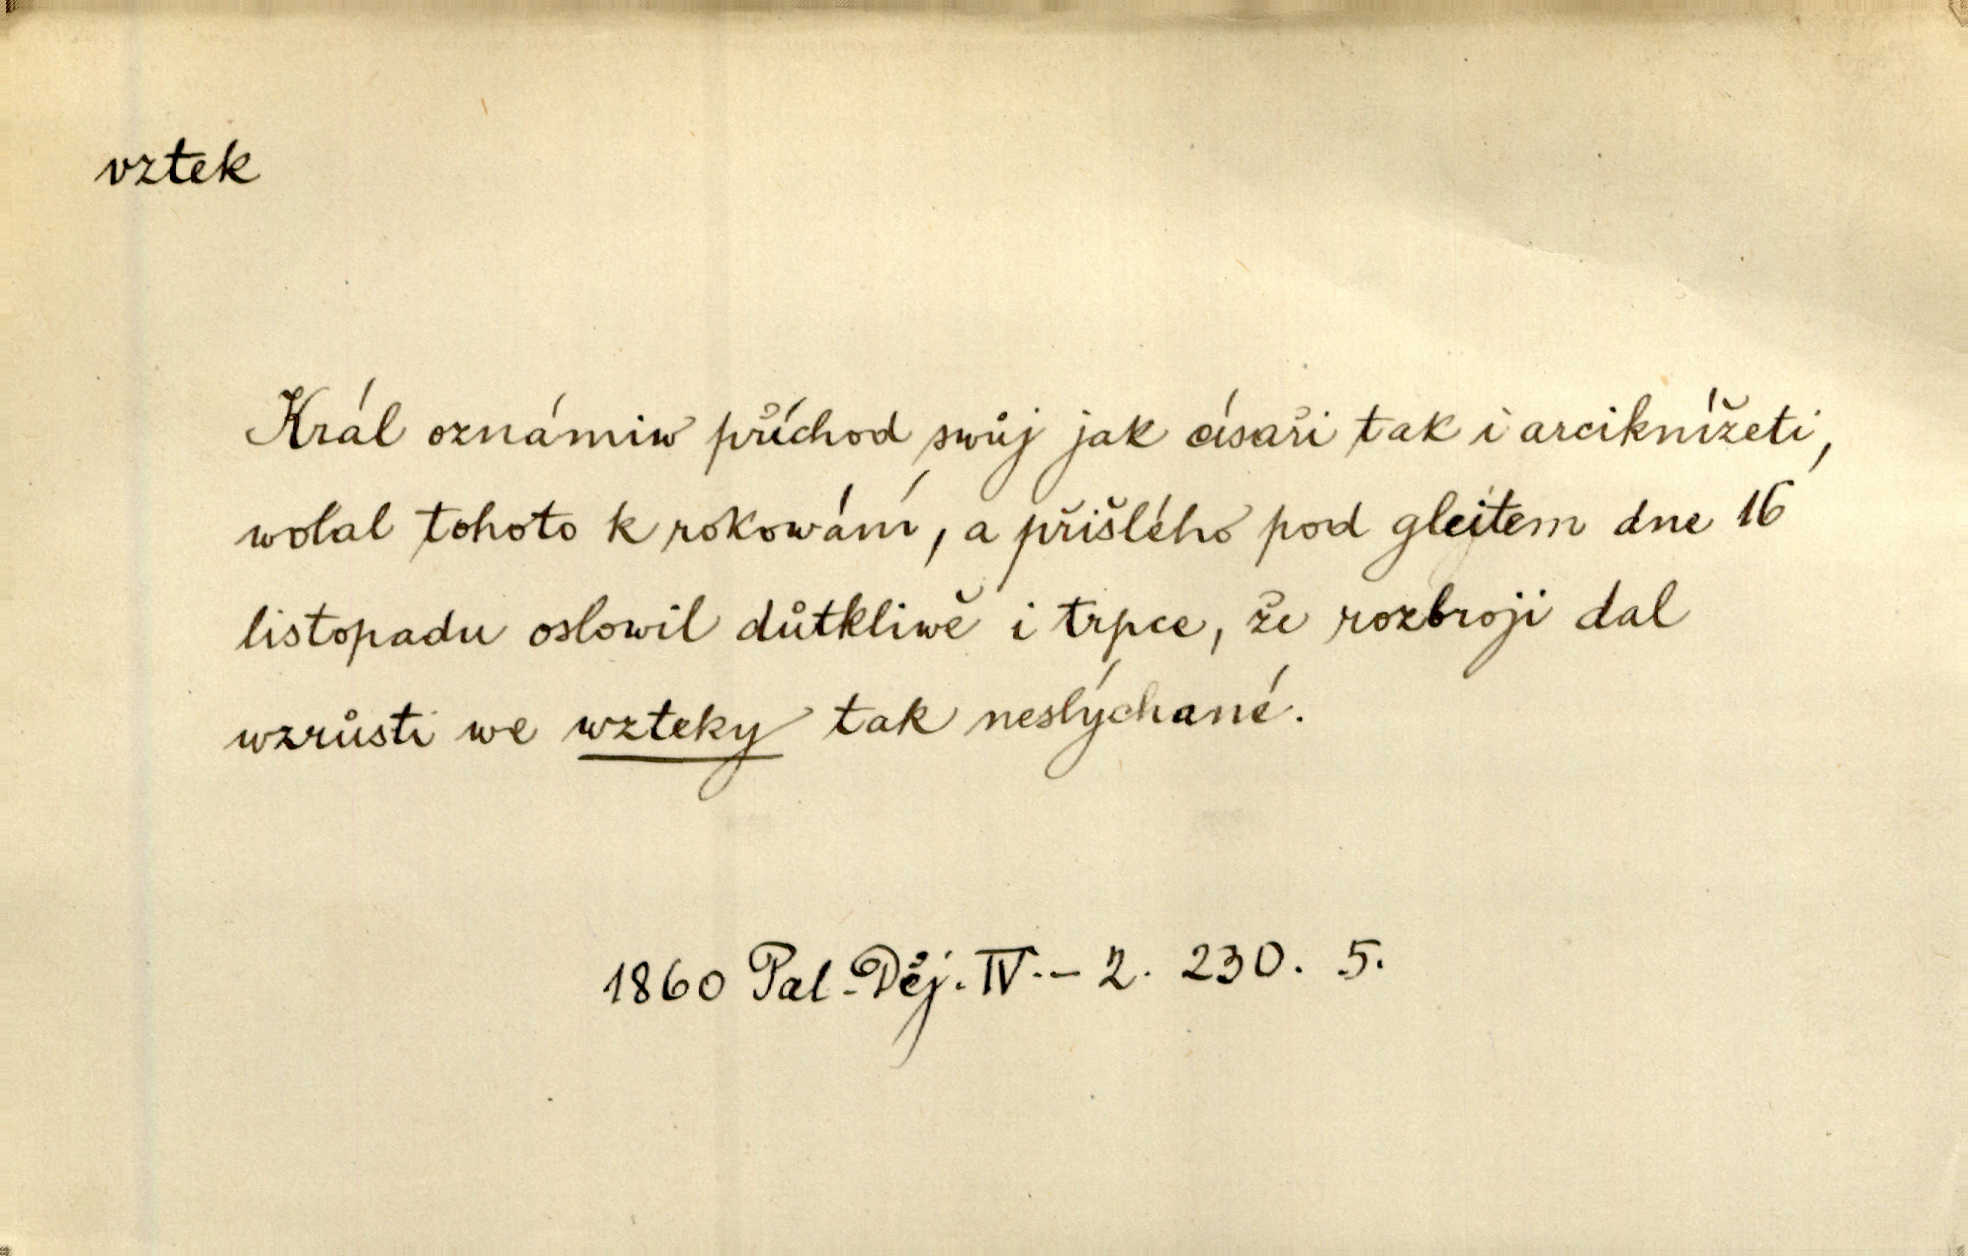 vztek
Král oznámiw příchod swůj jak císaři tak i arciknížeti,
wolal tohoto k rokowání, a přišlého pod glejtem dne 16
listopadu oslowil důtkliwě i trpce, že rozbroji dal
wzrůsti we wzteky tak neslýchané.
1860 Pal. Děj. IV. – 2. 230. 5.